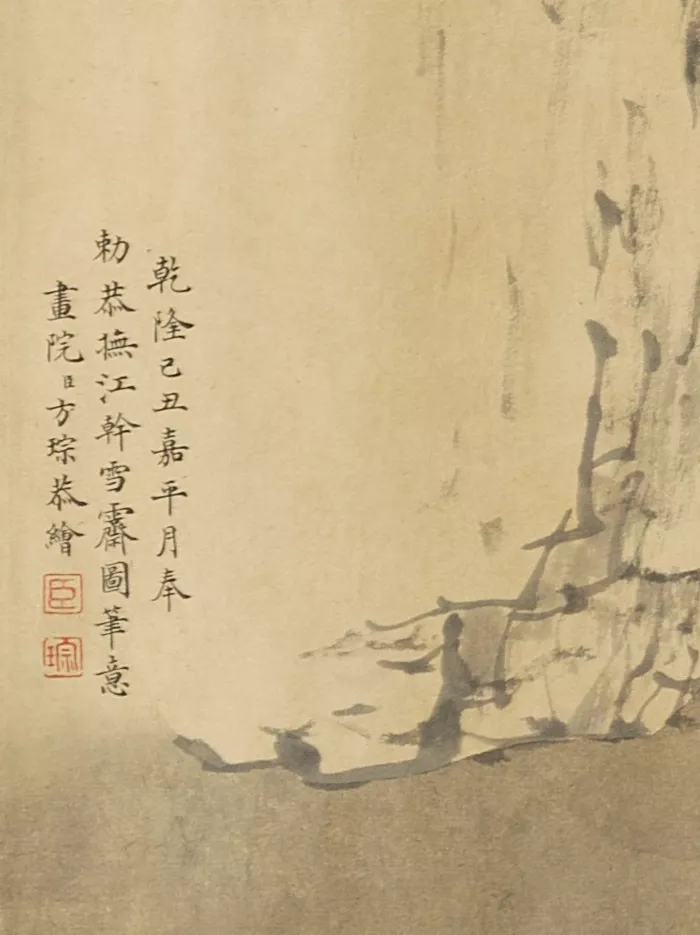 乾隆己丑嘉平月奉
勅恭撫江幹雪霽圖筆意
畫院臣方琮恭繪
臣
琮